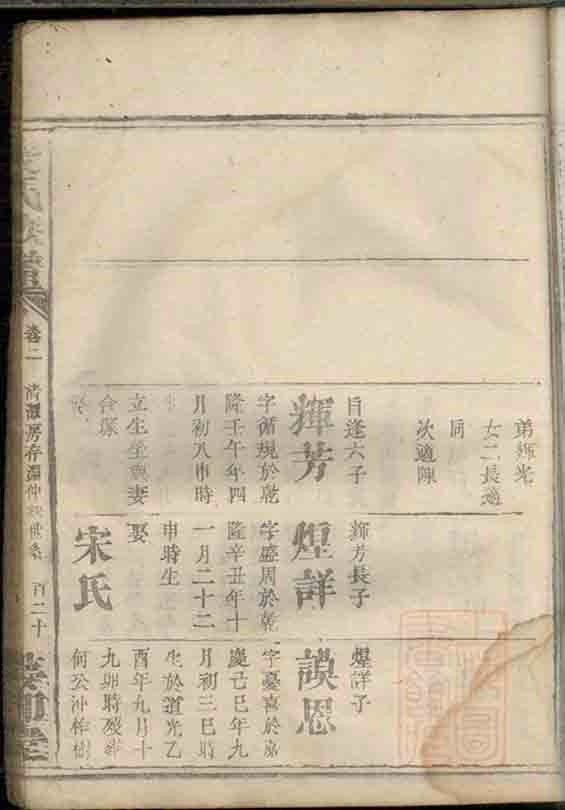 弟輝光
女二長適
同
次適陳
目逢六子
輝芳
字循規於乾
隆壬午年四
月初八申時
立生塋與妻
合塚
輝芳長子
煌詳
字盛周於乾
隆辛丑年十
一月二十二
申時生
娶
宋氏
煌詳子
謨恩
字臺嘉於嘉
慶己巳年九
月初三巳時
生於道光乙
酉年九月十
九卯時殁葬
何公沖柞樹
氏族譜
卷二
清潭房存淵仲
百二十